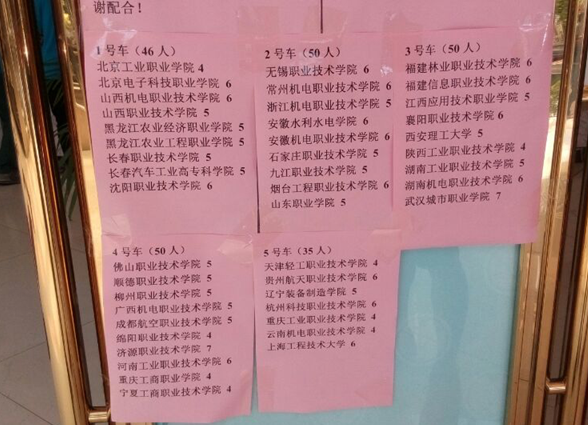 谢配合!
1号车（46人）
北京工业职业学院 4
北京电子科技职业学院 6
山西机电职业技术学院 6
山西职业技术学院 5
黑龙江农业经济职业学院 5
黑龙江农业工程职业学院 5
长春职业技术学院 5
长春汽车工业高专科学院 5
沈阳职业技术学院 6
2号车（50人）
无锡职业技术学院 6
常州机电职业技术学院 6
浙江机电职业技术学院 5
安徽水利水电学院 6
安徽机电职业技术学院 6
石家庄职业技术学院 5
九江职业技术学院 5
烟台工程职业技术学院 6
山东职业学院 5
3号车（50人）
福建林业职业技术学院 6
福建信息职业技术学院 6
江西应用技术职业学院 5
襄阳职业技术学院 6
西安理工大学 5
陕西工业职业技术学院 4
湖南工业职业技术学院 5
湖南机电职业技术学院 6
武汉城市职业学院 7
4号车（50人）
佛山职业技术学院 5
顺德职业技术学院 5
柳州职业技术学院 5
广西机电职业技术学院 5
成都航空职业技术学院 5
绵阳职业技术学院 4
济源职业技术学院 7
河南工业职业技术学院 6
重庆工商职业学院 4
宁夏工商职业技术学院 4
5号车（35人）
天津轻工职业技术学院 4
贵州航天职业技术学院 6
辽宁装备制造学院 5
杭州科技职业技术学院 6
重庆工业职业技术学院 4
云南机电职业技术学院 4
上海工程技术大学 6